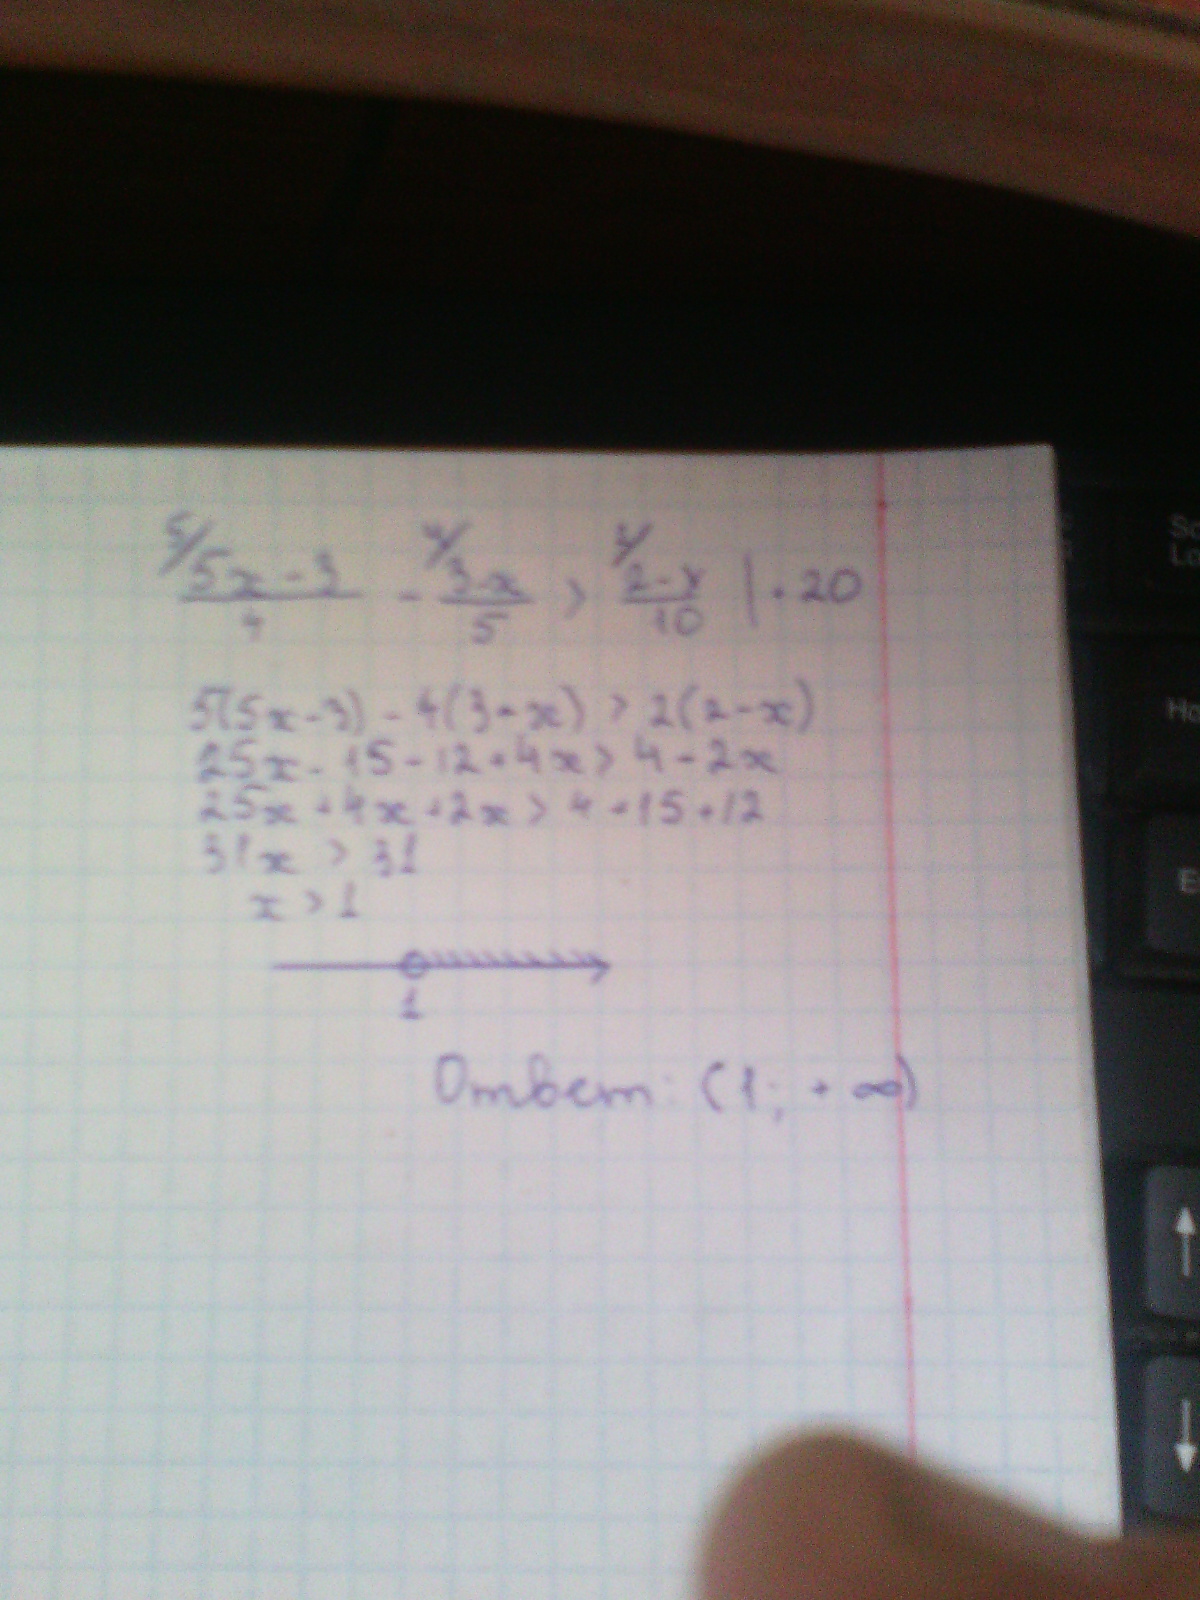 5/ 4/ 2/
5x-3 / 4 - 3-x / 5 > 2-x / 10 | · 20
5(5x-3) - 4(3-x) > 2(2-x)
25x - 15 - 12 + 4x > 4 - 2x
25x + 4x + 2x > 4 + 15 + 12
31x > 31
x > 1
1
Ответ: (1; + ∞)
Ho
E
↑
↓